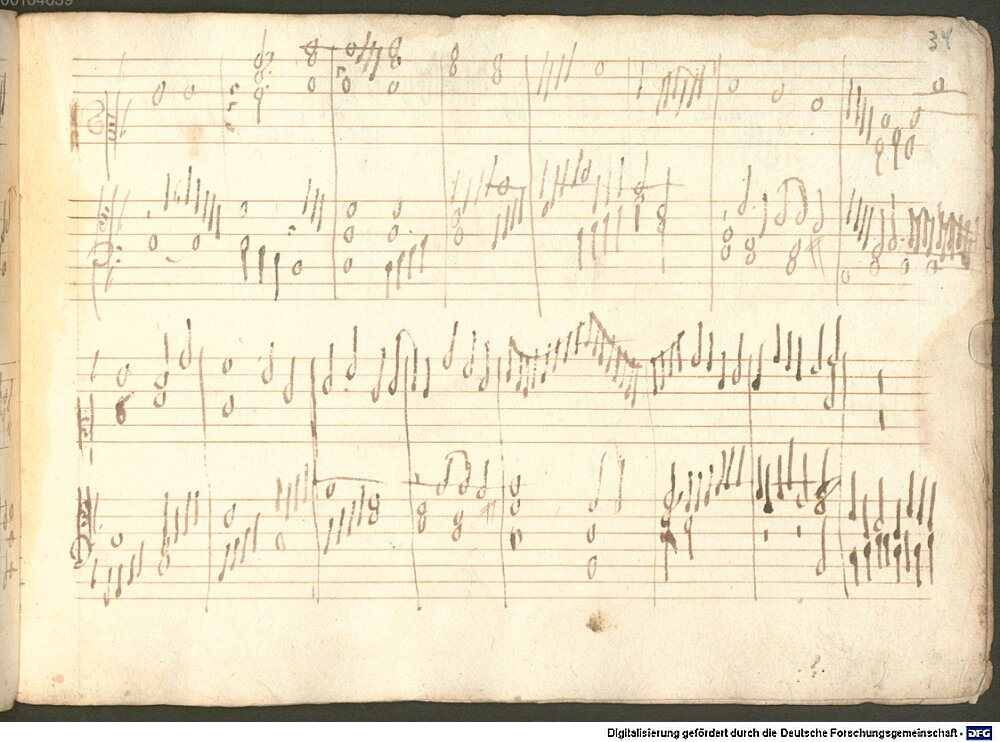 00104639
34
Digitalisierung gefördert durch die Deutsche Forschungsgemeinschaft - DFG